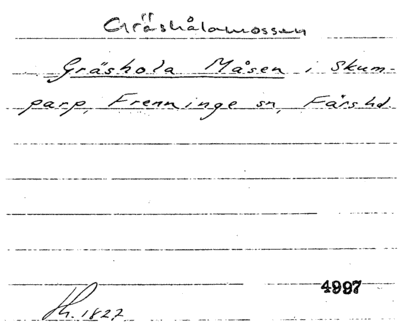 Gräshålamossen
Gräshola Måsen i Skum-
parp, Frenninge sn, Färs hd
4997
1827